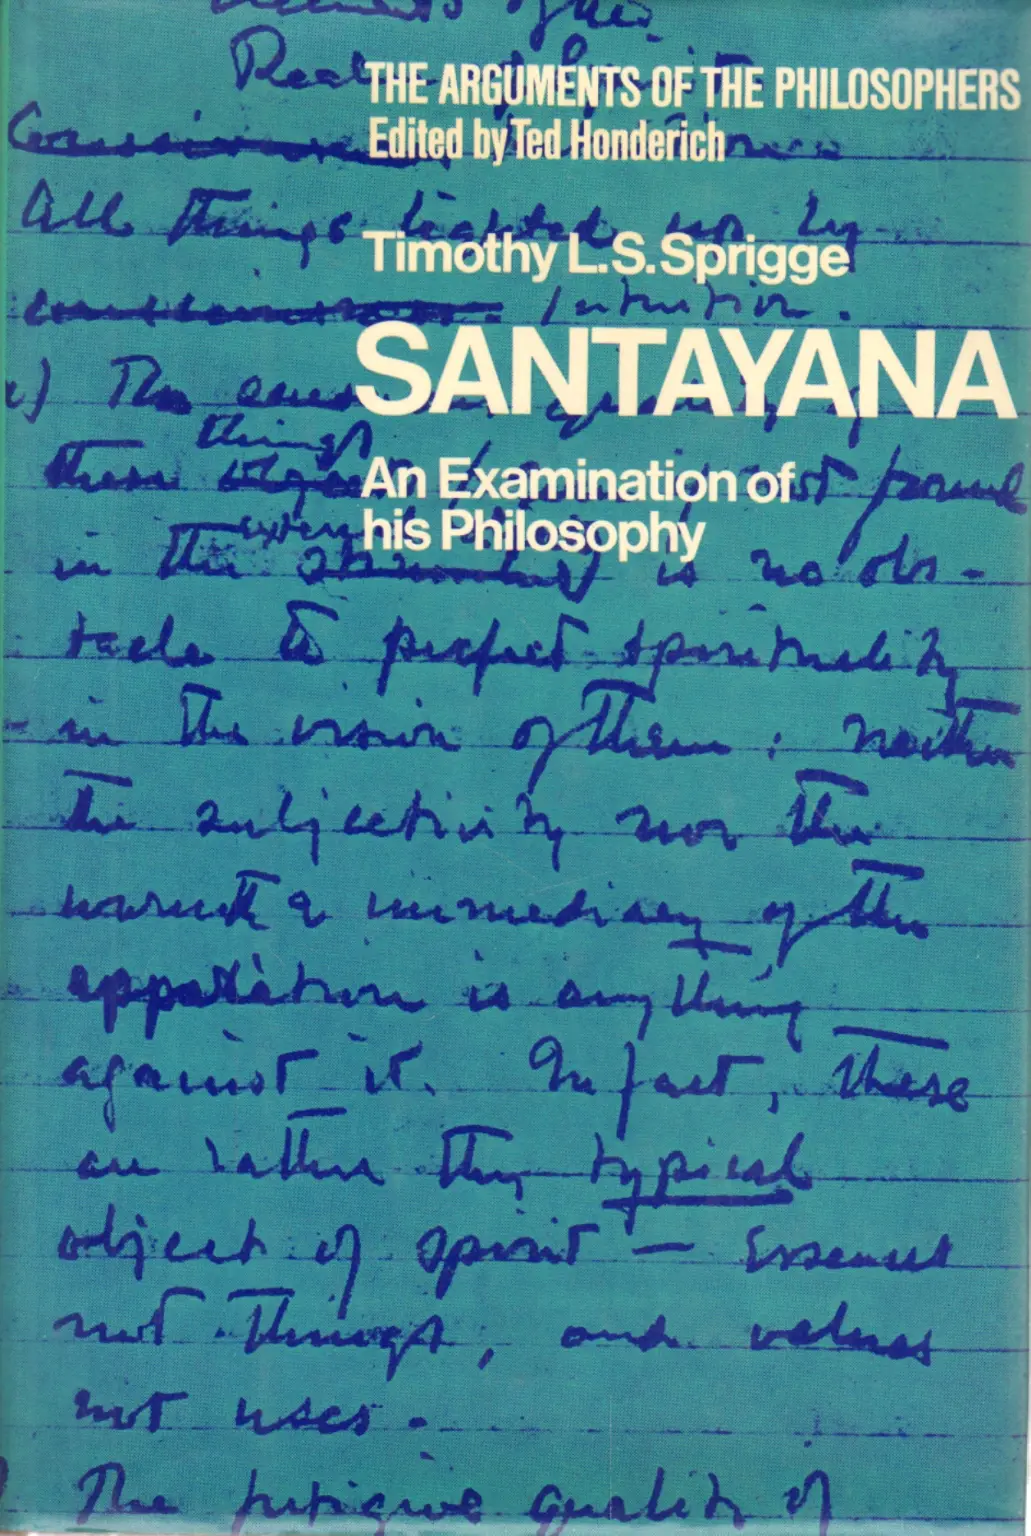 of the
Real
THE ARGUMENTS OF THE PHILOSOPHERS
Edited by Ted Honderich
All things lighted up by
Timothy L.S. Sprigge
Intuition.
SANTAYANA
The
things
these not found
An Examination of
his Philosophy
in the is no obs-
tacle to perfect spirituality
in the vision of them: neither
the subjectivity nor the
warmth & immediacy of the
apparition is anything
against it. In fact, these
are rather the typical
object of spirit — essences
not things, and values
not uses.
The quality of